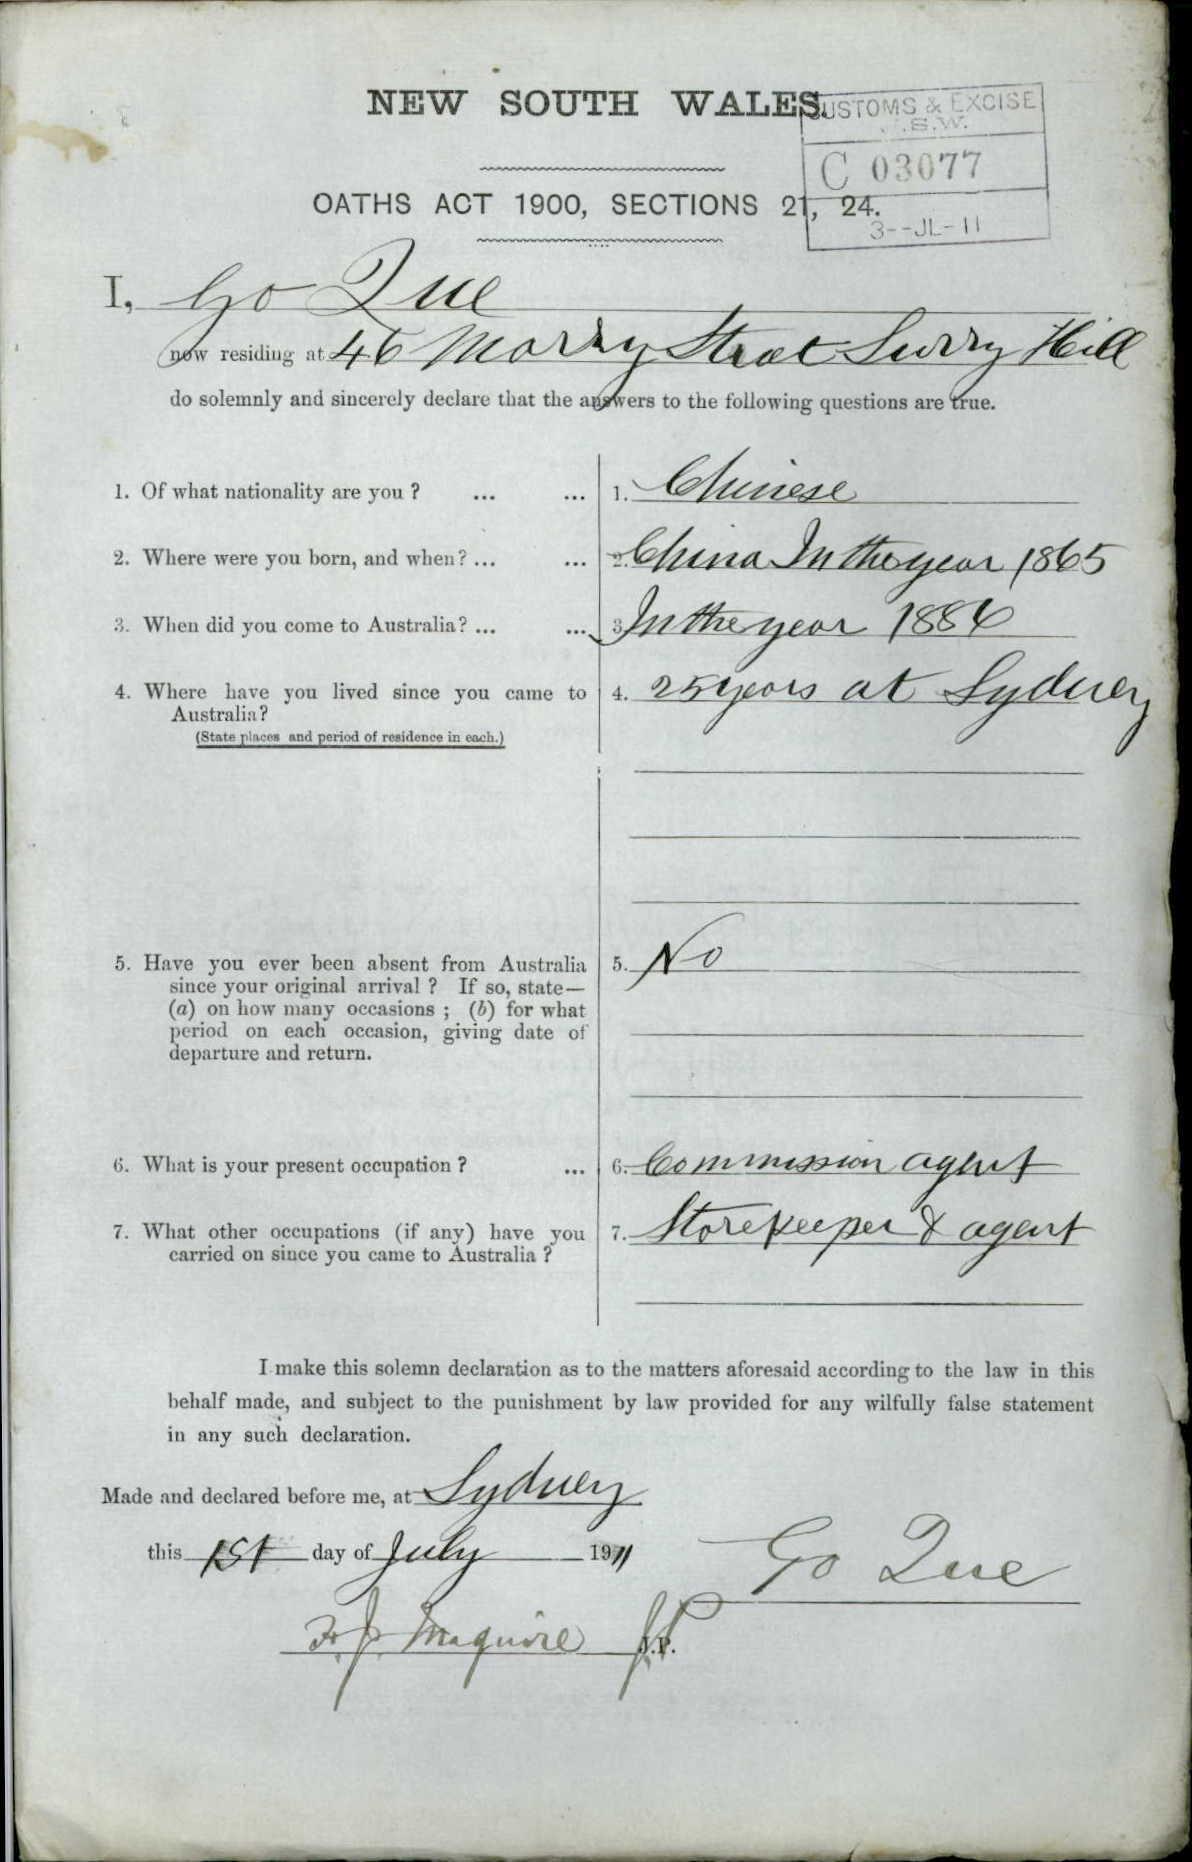 NEW SOUTH WALES.
CUSTOMS & EXCISE
N.S.W.
C 03077
3--JL-11
OATHS ACT 1900, SECTIONS 21, 24.
I, Go Que
now residing at 46 Morry Street Surry Hill
do solemnly and sincerely declare that the answers to the following questions are true.
1. Of what nationality are you? ... ... 1. Chinese
2. Where were you born, and when? ... ... 2. China In the year 1865
3. When did you come to Australia? ... ... 3 In the year 1886
4. Where have you lived since you came to 4. 25 years at Sydney
Australia?
(State places and period of residence in each.)
5. Have you ever been absent from Australia 5. No
since your original arrival? If so, state—
(a) on how many occasions; (b) for what
period on each occasion, giving date of
departure and return.
6. What is your present occupation? ... 6. Commission agent
7. What other occupations (if any) have you 7. Storekeeper & agent
carried on since you came to Australia?
I make this solemn declaration as to the matters aforesaid according to the law in this
behalf made, and subject to the punishment by law provided for any wilfully false statement
in any such declaration.
Made and declared before me, at Sydney
this 1st day of July 1911
Go Que
F. J. Maguire J.P.
J.P.